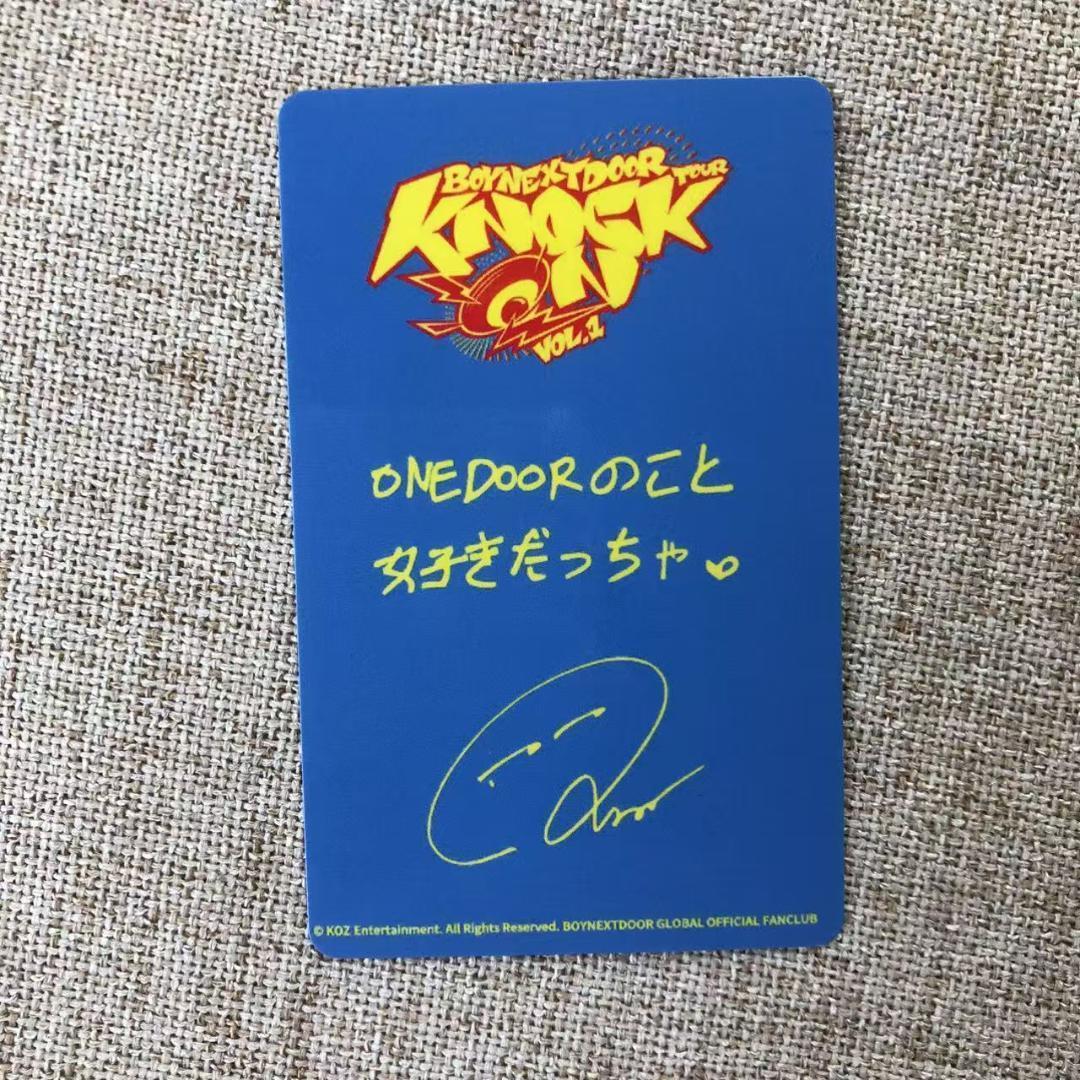 BOYNEXTDOOR TOUR
KNOCK
ON
VOL.1
ONEDOORのこと
好きだっちゃ♥
© KOZ Entertainment. All Rights Reserved. BOYNEXTDOOR GLOBAL OFFICIAL FANCLUB